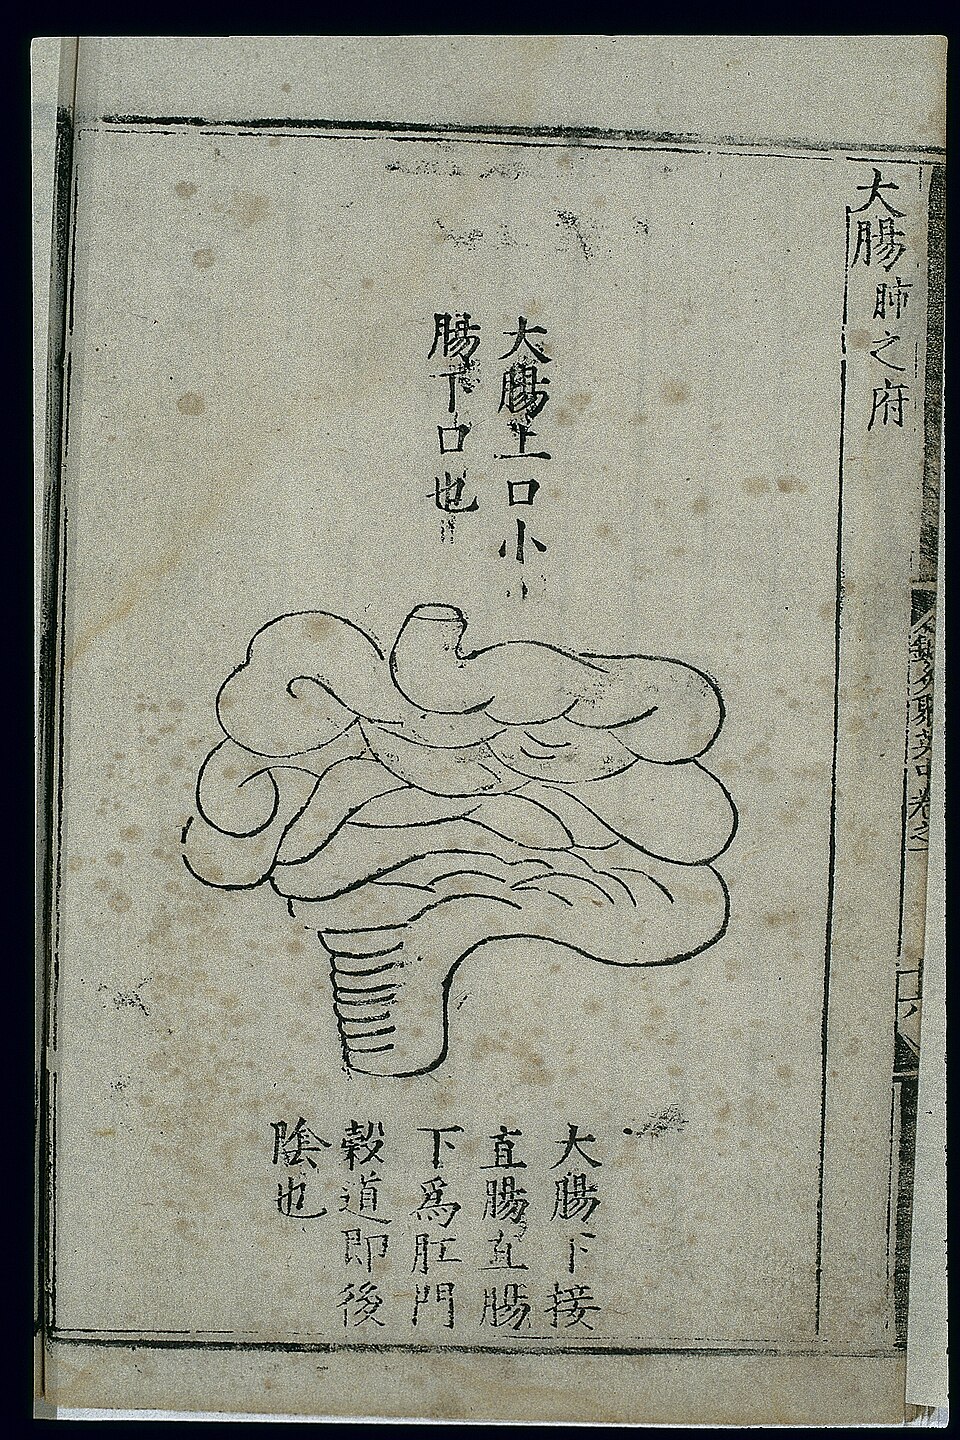 大腸肺之府
大腸上口小
腸下口也
大腸下接
直腸直腸
下爲肛門
穀道即後
陰也
聚英
卷之
六